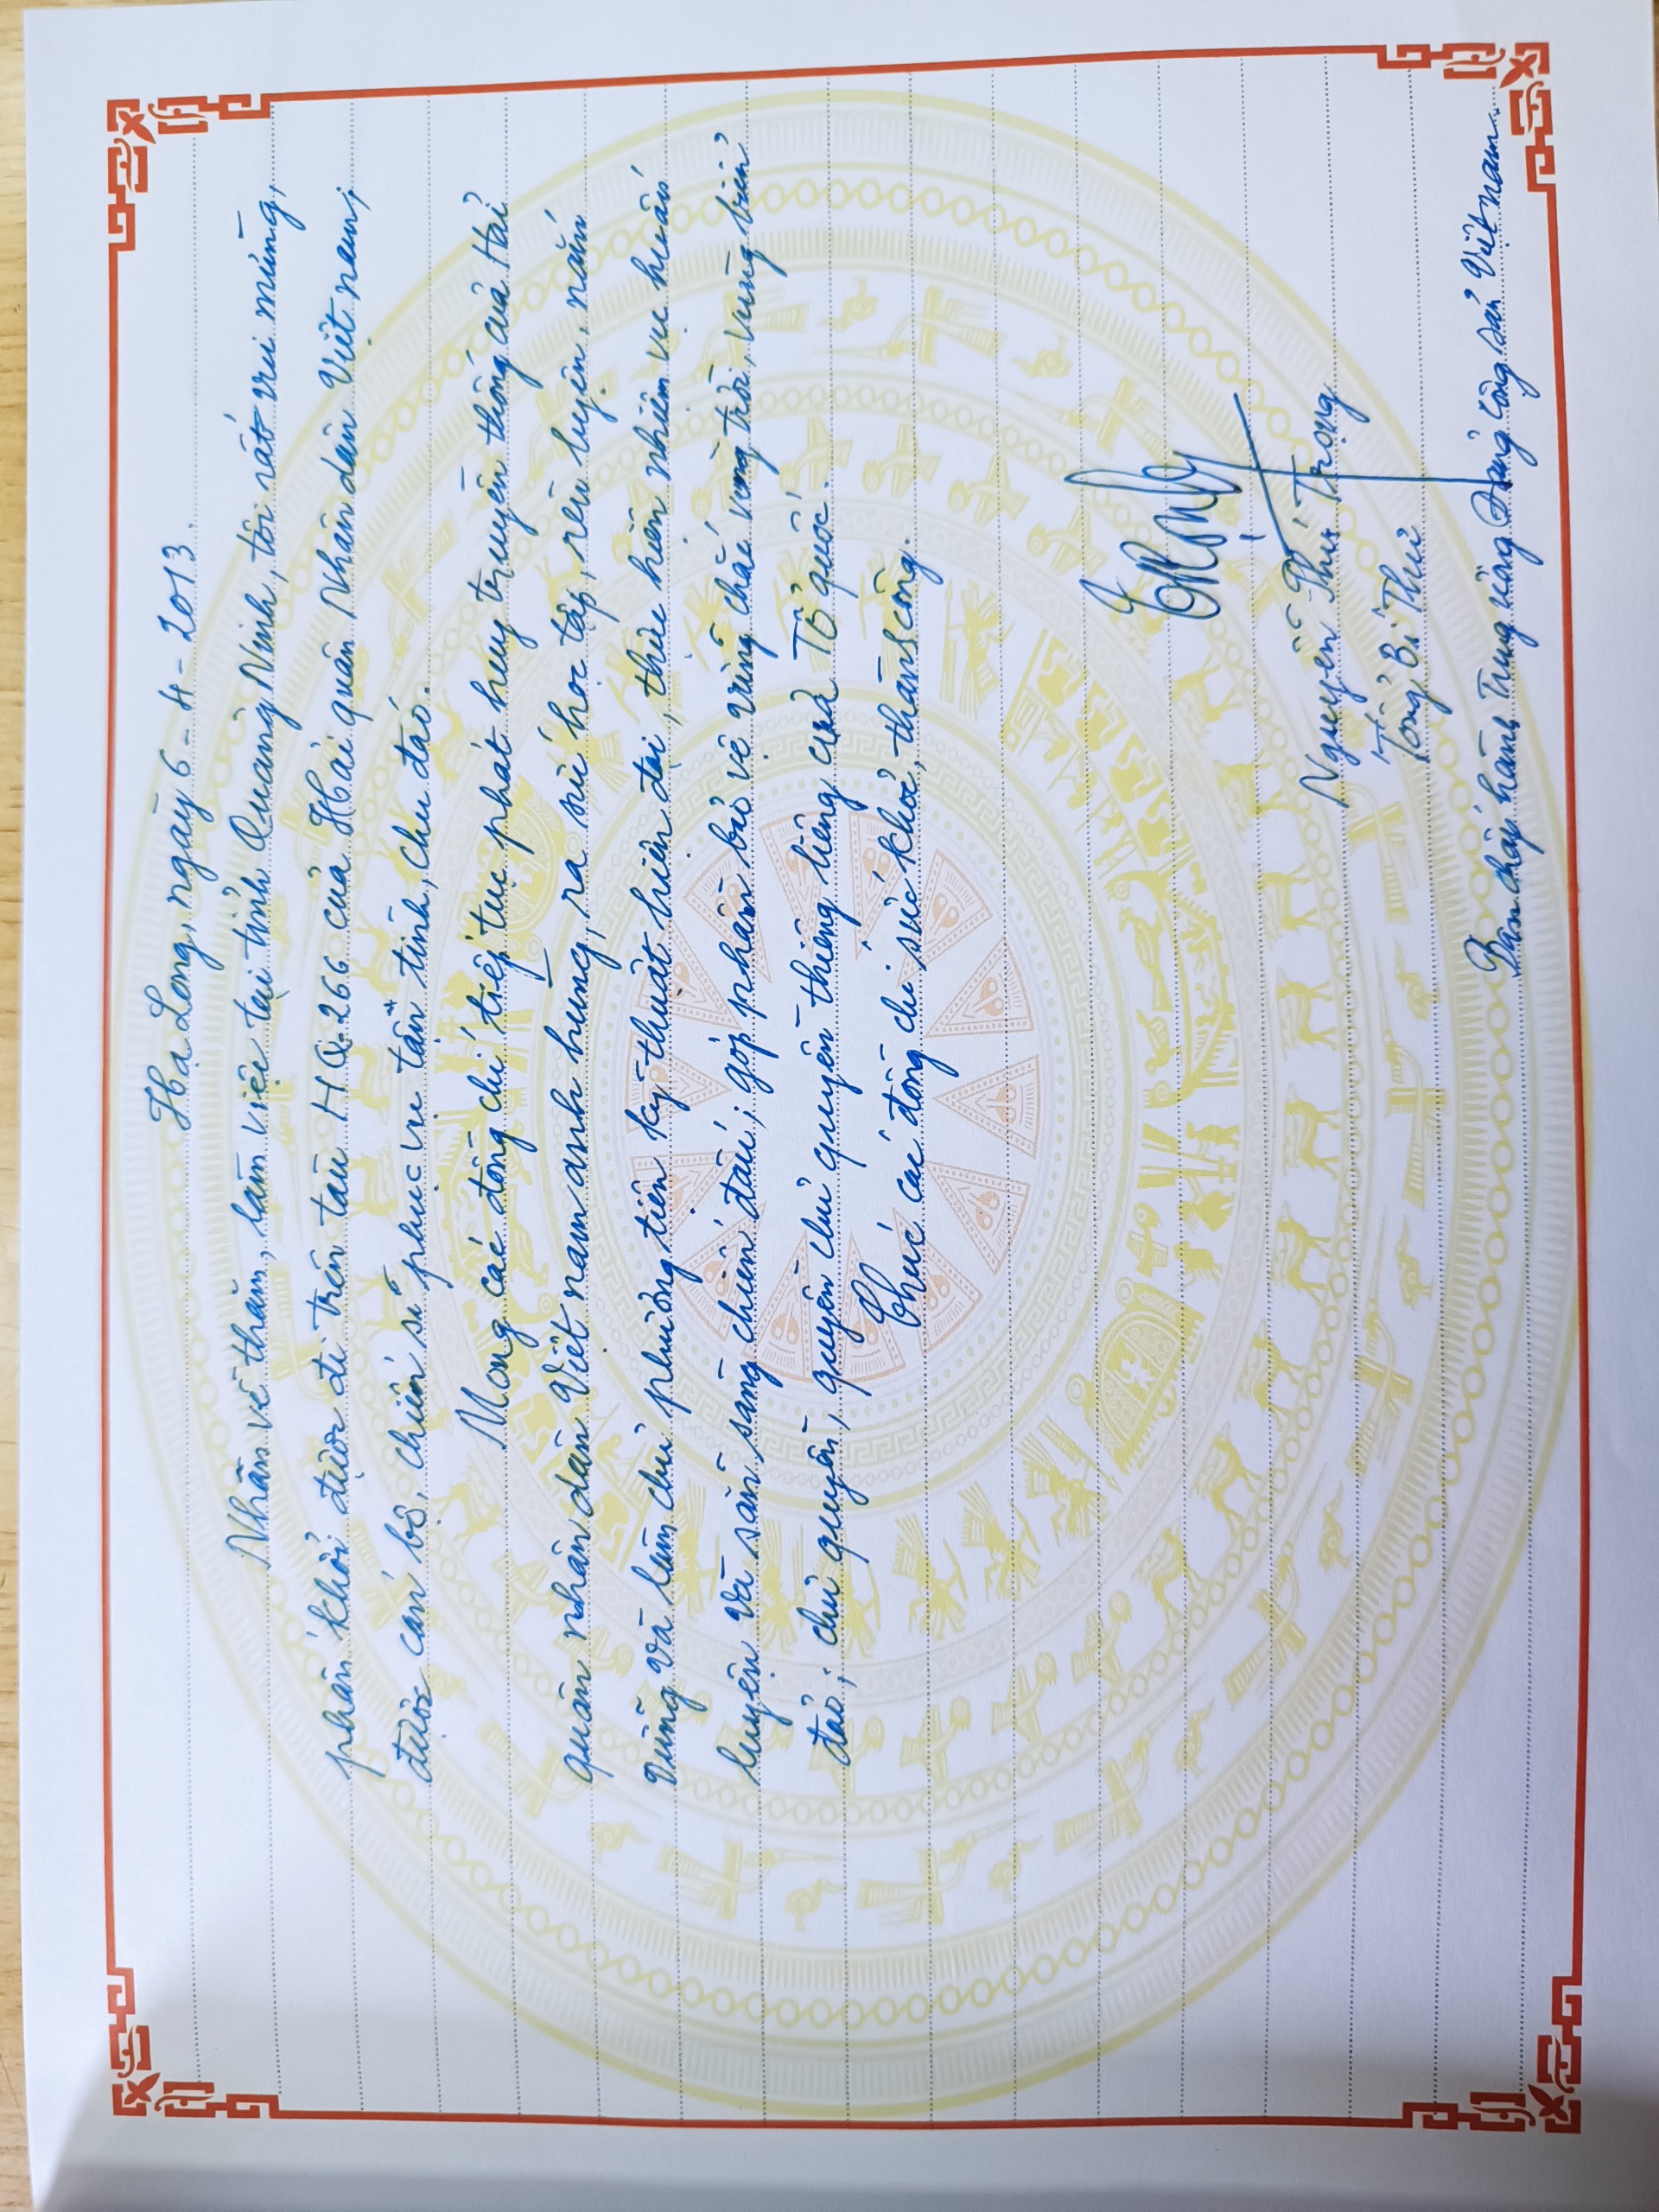 Hạ Long, ngày 6-4-2013.
Nhân về thăm, làm việc tại tỉnh Quảng Ninh, tôi rất vui mừng,
phấn khởi được đi trên tàu HQ.266 của Hải quân Nhân dân Việt nam,
được cán bộ, chiến sĩ phục vụ tận tình, chu đáo.
Mong các đồng chí tiếp tục phát huy truyền thống của Hải
quân nhân dân Việt nam anh hùng, ra sức học tập, rèn luyện, nắm
vững và làm chủ phương tiện kỹ thuật hiện đại, thực hiện nhiệm vụ huấn
luyện và sẵn sàng chiến đấu; góp phần bảo vệ vững chắc vùng trời, vùng biển
đảo; chủ quyền, quyền chủ quyền thiêng liêng của Tổ quốc.
Chúc các đồng chí sức khỏe, thành công.
Nguyễn Phú Trọng
Tổng Bí Thư
Ban chấp hành Trung ương Đảng Cộng sản Việt nam.